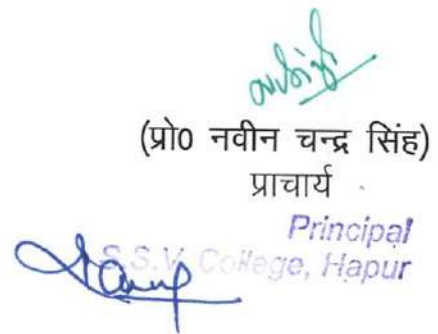 (प्रो0 नवीन चन्द्र सिंह)
प्राचार्य
Principal
S.S.V. College, Hapur